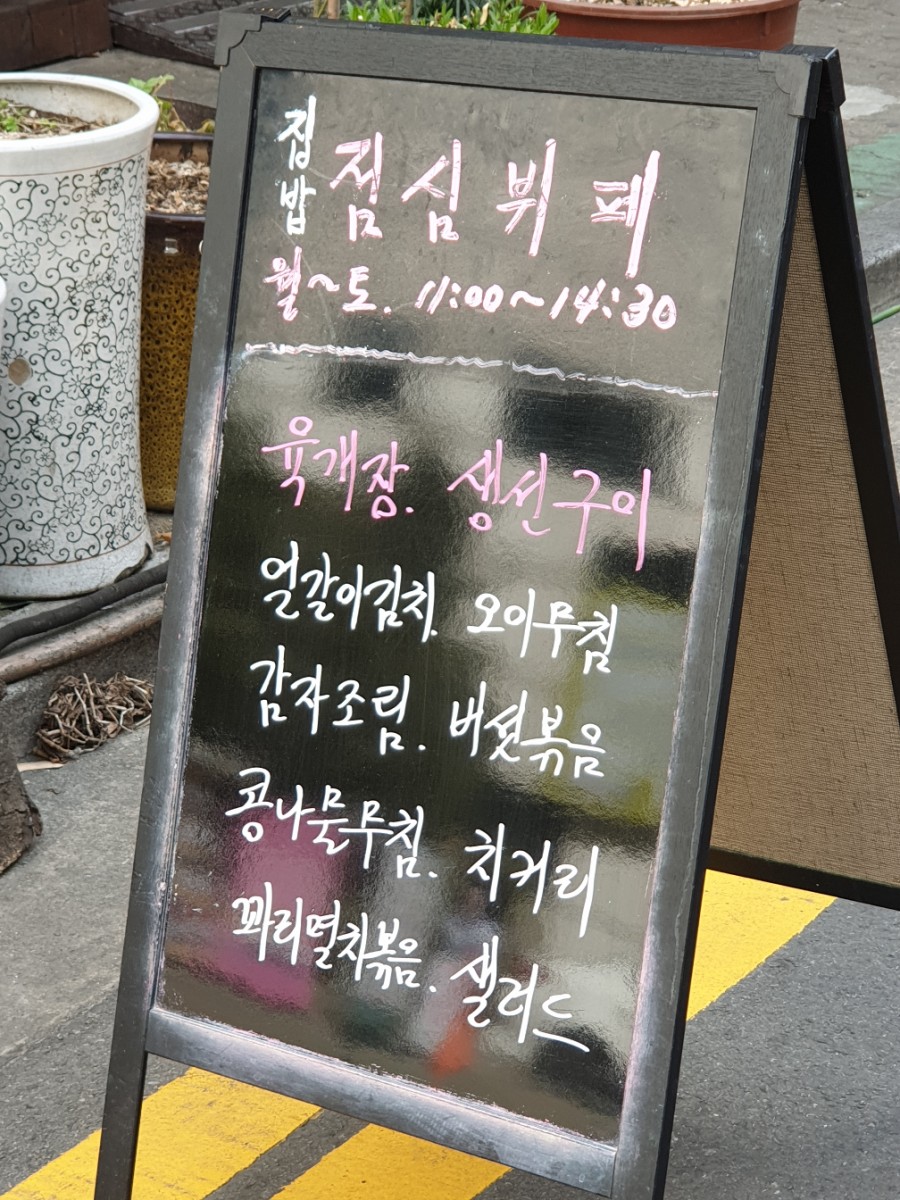 집밥 점심 뷔페
월~토. 11:00~14:30
육개장. 생선구이
얼갈이김치. 오이무침
감자조림. 버섯볶음
콩나물무침. 치커리
꽈리멸치볶음. 샐러드